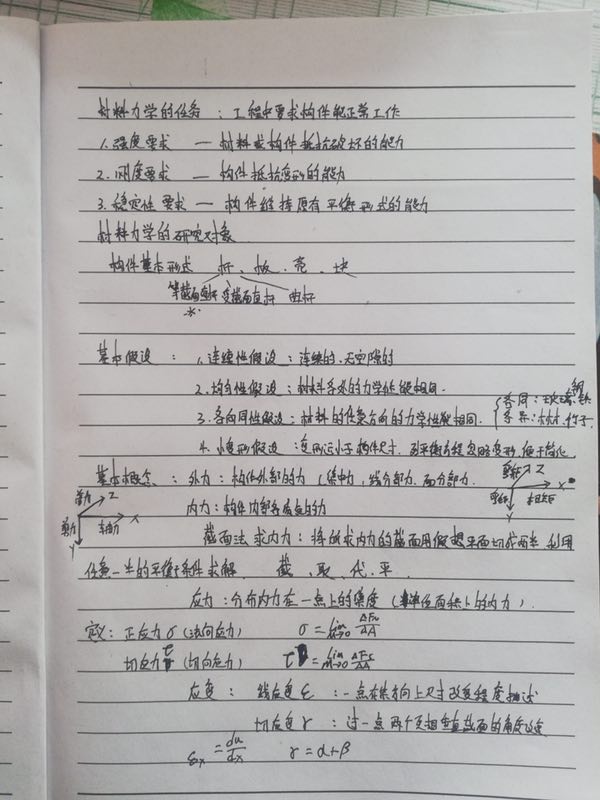 材料力学的任务：工程中要求构件能正常工作
1.强度要求 — 材料或构件抵抗破坏的能力
2.刚度要求 — 构件抵抗变形的能力
3.稳定性要求 — 构件维持原有平衡形式的能力
材料力学的研究对象
构件基本形式 杆、板、壳、块
等截面直杆 变截面直杆 曲杆
基本假设：1.连续性假设：连续的、无空隙的
2.均匀性假设：材料各处的力学性能相同.
3.各向同性假设：材料的任意方向的力学性能相同.
各同：玻璃 钢 铁
各异：木材.竹子
4.小变形假设：变形远小于构件尺寸.列平衡方程忽略变形,便于简化
基本概念：外力：构件外部的力(集中力,线分部力.面分部力.
剪力 Z
剪力 Y 轴力 X
弯矩 Z
弯矩 Y 扭矩 X
内力：构件内部各质点的力
截面法求内力：将所求内力的截面用假想平面切成两半,利用
任意一半的平衡条件求解. 截、取、代、平.
应力：分布内力在一点上的集度(单位面积上的内力).
定义：正应力σ(法向应力) σ=lim ΔA→0 ΔFN/ΔA
切应力τ(切向应力) τ=lim ΔA→0 ΔFs/ΔA
应变：线应变ε：一点在某方向上尺寸改变程度描述
切应变γ：过一点两个互相垂直截面的角度改变
εx=du/dx γ=α+β